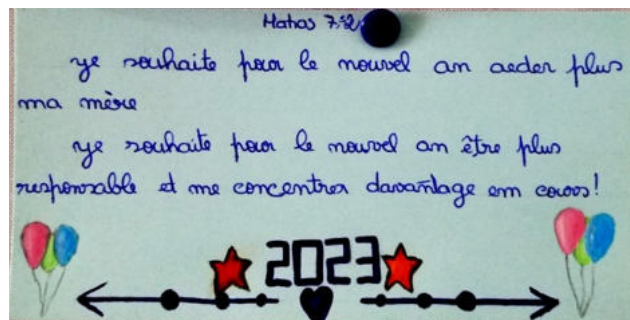 Matias 7:2
ye souhaite pour le nouvel an aeder plus
ma mère
ye souhaite pour le nouvel an être plus
responsable et me concentrer davantage em cours!
2023